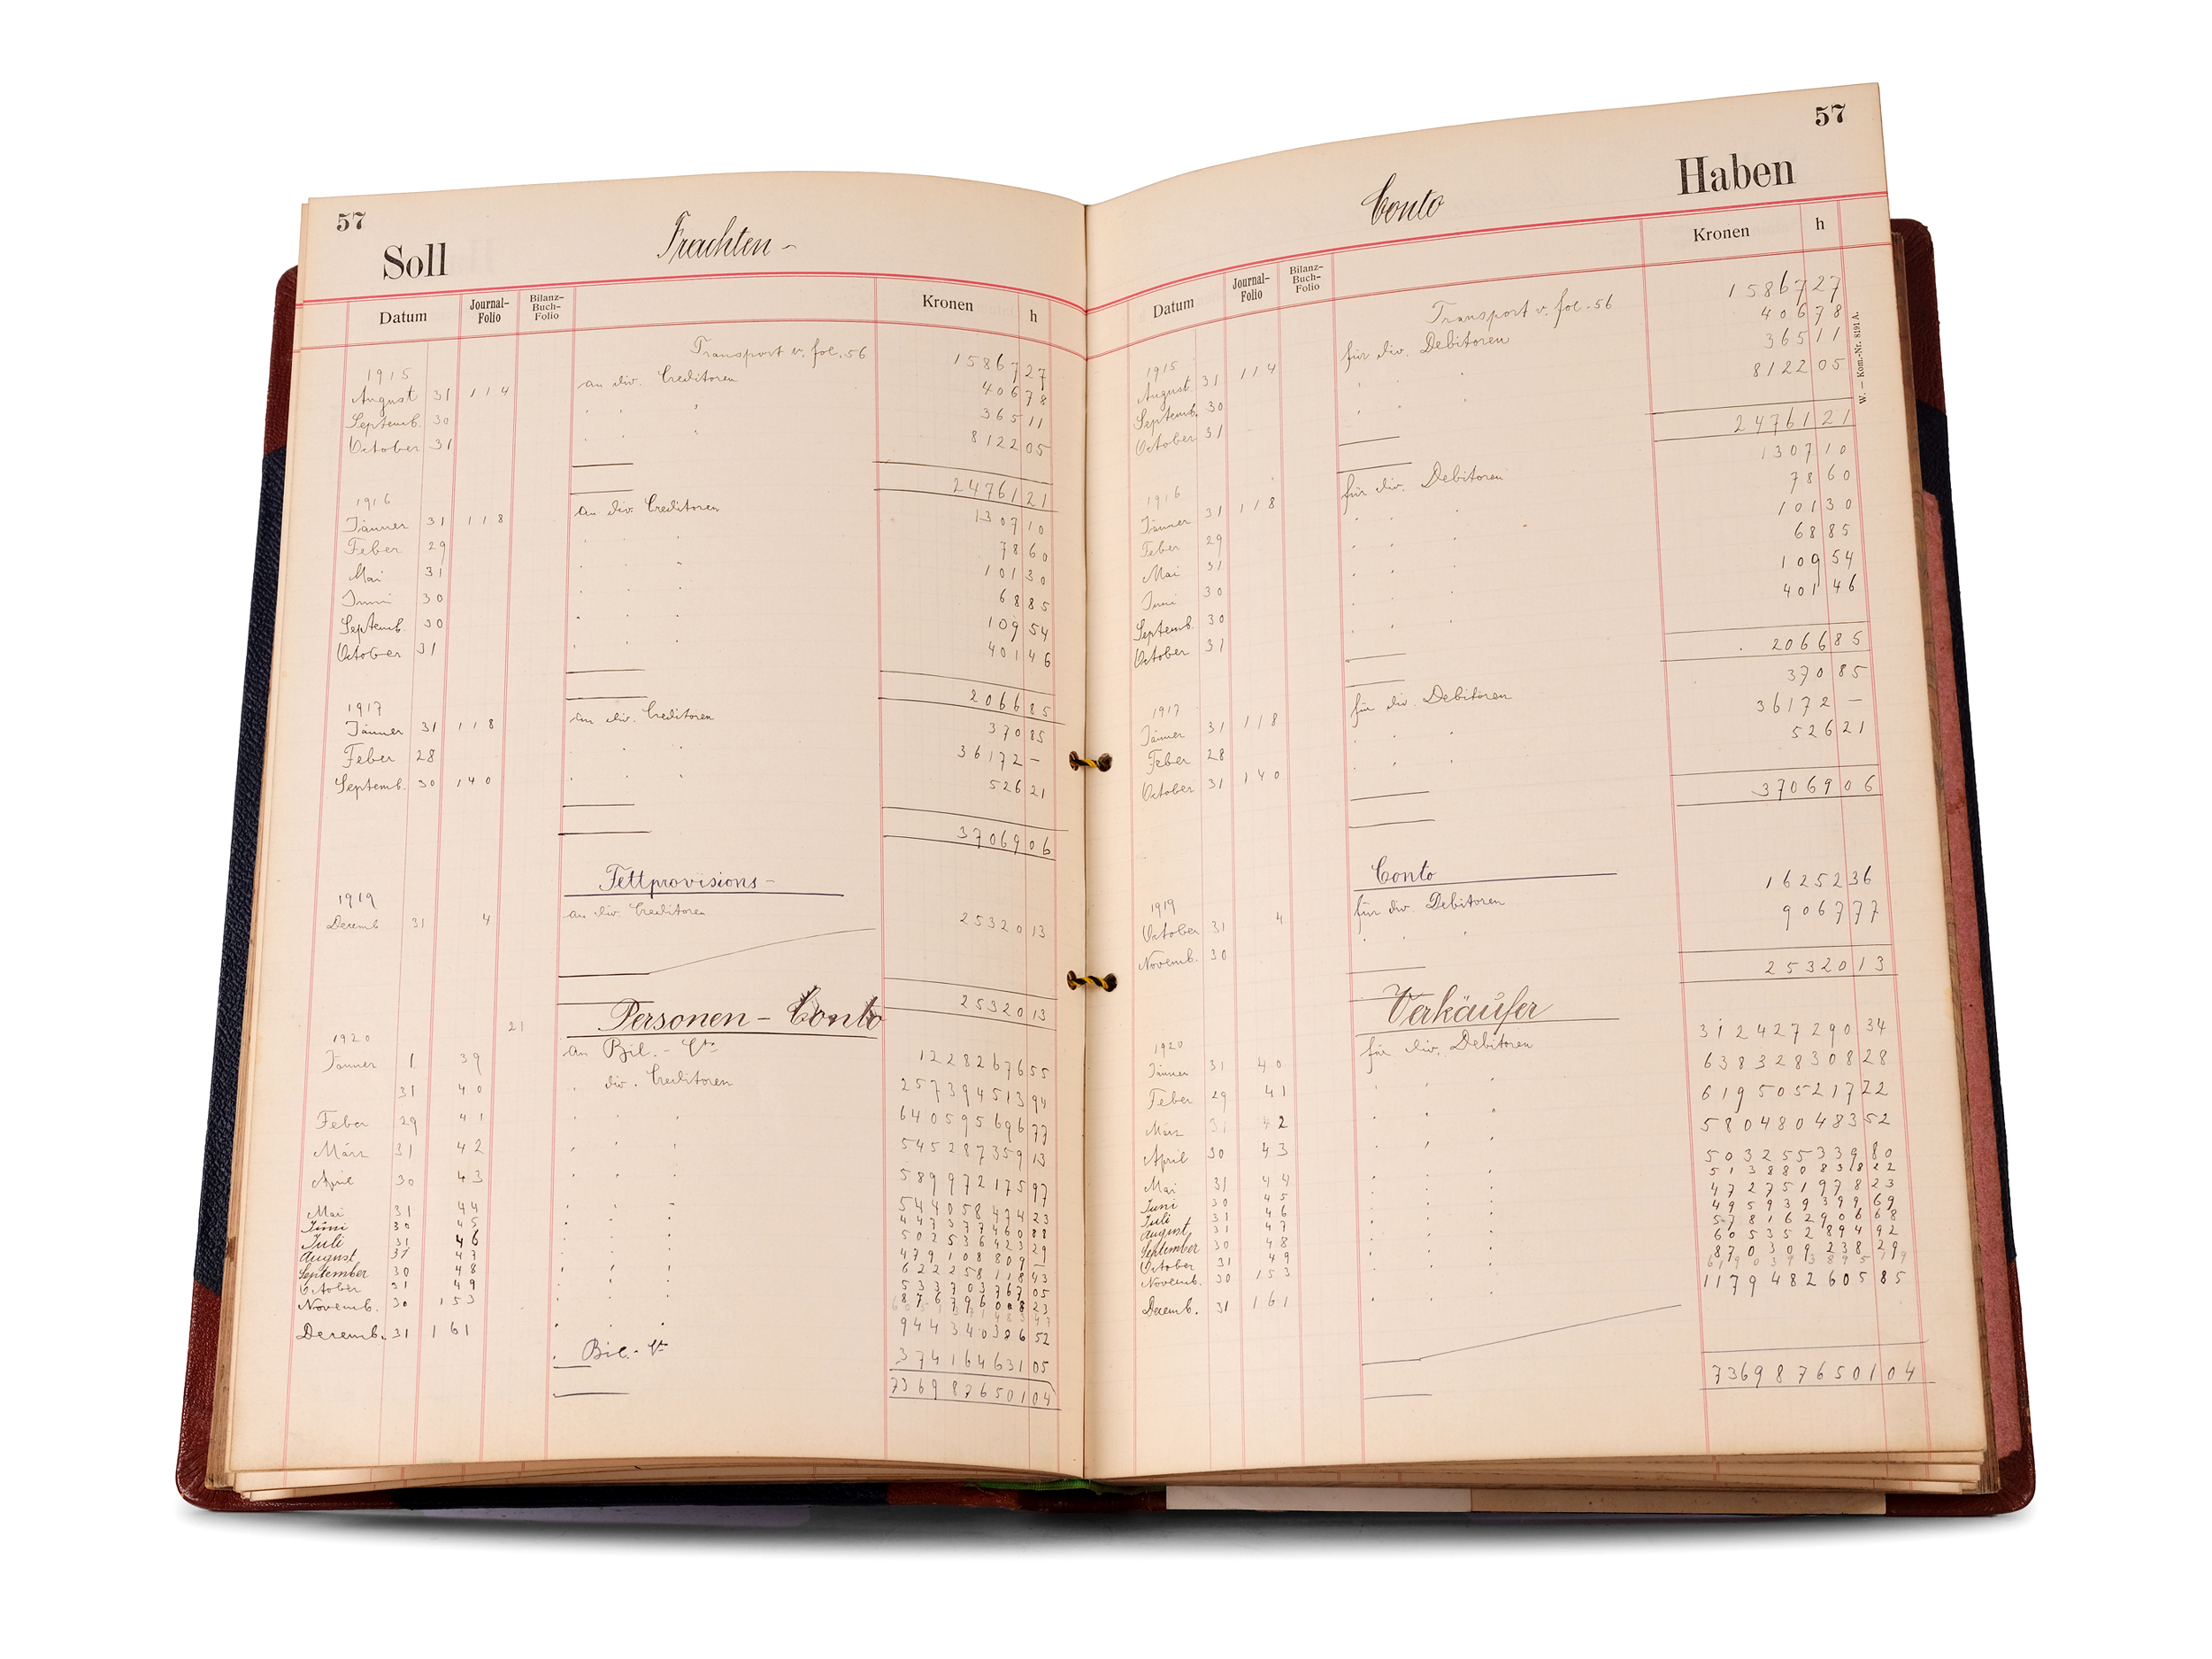 57
Soll
Frachten -
Datum Journal-Folio Bilanz-Buch-Folio Kronen h
Transport v. fol. 56 15867 27
1915
August 31 114 an div. Creditoren 406 78
Septemb. 30 " " " 365 11
October 31 " " 8122 05
24761 21
1916
Jänner 31 118 an div. Creditoren 1307 10
Feber 29 " " " 78 60
Mai 31 " " " 101 30
Juni 30 " " " 68 85
Septemb. 30 " " " 109 54
October 31 " " " 401 46
2066 85
1917
Jänner 31 118 an div. Creditoren 370 85
Feber 28 " " " 36172 -
Septemb. 30 140 " " " 526 21
37069 06
Fettprovisions -
1919
Decemb 31 4 an div. Creditoren 25320 13
25320 13
21 Personen - Conto
1920
Jänner 1 39 an Bil. - Cto 12282676 55
31 40 " div. Creditoren 257394513 94
Feber 29 41 " " " 640595696 77
März 31 42 " " " 545287359 13
April 30 43 " " " 589972175 97
Mai 31 44 " " " 544058474 23
Juni 30 45 " " "
Juli 31 46 " " " 502536423 29
August 31 47 " " " 479108809 -
September 30 48 " " " 622258118 43
October 31 49 " " " 533703767 05
Novemb. 30 153 " " "
Decemb. 31 161 " " " 944340306 52
" Bil. - Cto 374164631 05
7369876501 04
57
Haben
Conto
Datum Journal-Folio Bilanz-Buch-Folio Kronen h
W. — Kom.-Nr. 8191 A.
Transport v. fol. 56 15867 27
1915
August 31 114 für div. Debitoren 406 78
Septemb. 30 " " " 365 11
October 31 " " 8122 05
24761 21
1916
Jänner 31 118 für div. Debitoren 1307 10
Feber 29 " " " 78 60
Mai 31 " " " 101 30
Juni 30 " " " 68 85
Septemb. 30 " " " 109 54
October 31 " " " 401 46
2066 85
1917
Jänner 31 118 für div. Debitoren 370 85
Feber 28 " " " 36172 —
October 31 140 " " " 526 21
37069 06
Conto
1919
October 31 4 für div. Debitoren 16252 36
Novemb. 30 " " " 9067 77
25320 13
Verkäufer
1920
Jänner 31 40 für div. Debitoren 312427290 34
Feber 29 41 " " " 638328308 28
März 31 42 " " " 619505217 22
April 30 43 " " " 580480483 52
Mai 31 44 " " " 503255339 80
Juni 30 45 " " " 513880838 22
Juli 31 46 " " " 472751978 23
August 31 47 " " " 495939399 69
September 30 48 " " " 578162906 68
October 31 49 " " " 605352894 92
Novemb. 30 153 " " " 870309238 29
Decemb. 31 161 " " " 1179482605 85
7369876501 04